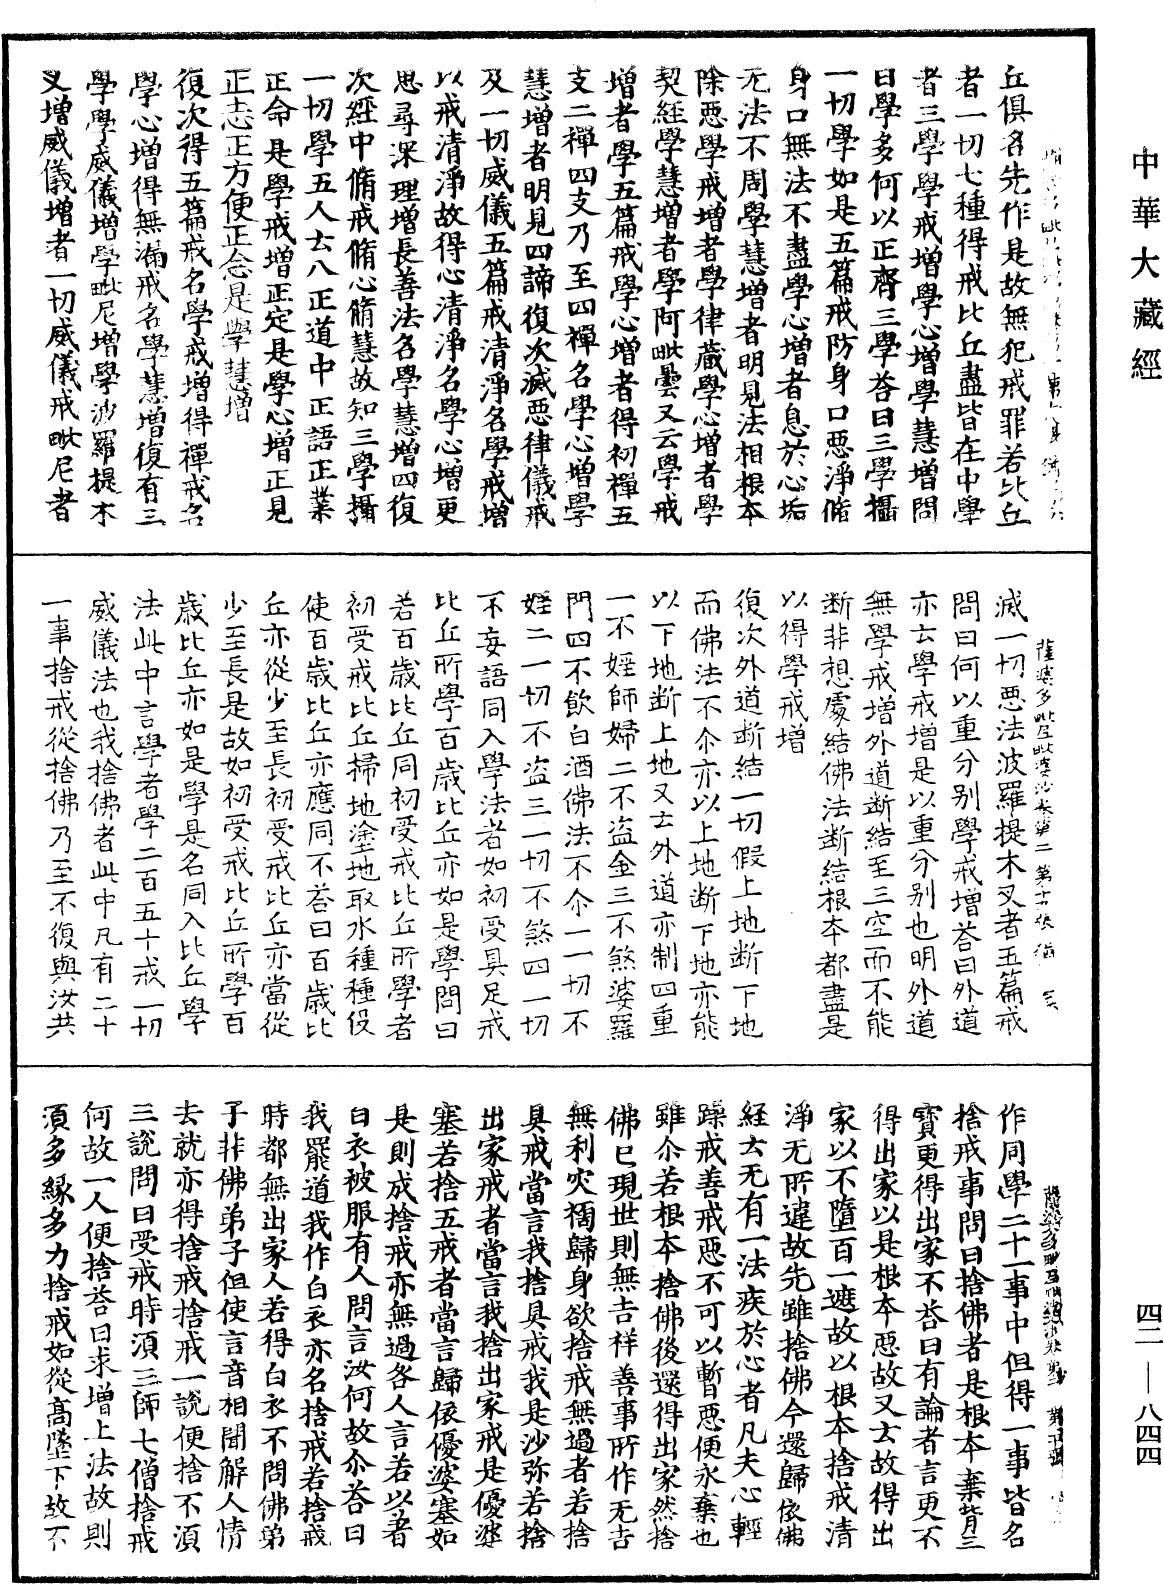 中華大藏經
丘俱名先作是故無犯戒罪若比丘
者一切七種得戒比丘盡皆在中學
者三學學戒增學心增學慧增問
曰學多何以正齊三學荅曰三學攝
一切學如是五篇戒防身口惡淨脩
身口無法不盡學心增者息於心垢
无法不周學慧增者明見法相根本
除惡學戒增者學律藏學心增者學
契經學慧增者學阿毗曇又云學戒
增者學五篇戒學心增者得初禪五
支二禪四支乃至四禪名學心增學
慧增者明見四諦復次滅惡律儀戒
及一切威儀五篇戒清淨名學戒增
以戒清淨故得心清淨名學心增更
思尋深理增長善法名學慧增四復
次經中脩戒脩心脩慧故知三學攝
一切學五人去八正道中正語正業
正命是學戒增正定是學心增正見
正志正方便正念是學慧增
復次得五篇戒名學戒增得禪戒名
學心增得無漏戒名學慧增復有三
學學威儀增學毗尼增學波羅提木
叉增威儀增者一切威儀戒毗尼者
薩婆多毗尼毗婆沙卷第二
滅一切惡法波羅提木叉者五篇戒
問曰何以重分別學戒增荅曰外道
亦云學戒增是以重分別也明外道
無學戒增外道斷結至三空而不能
斷非想處結佛法斷結根本都盡是
以得學戒增
復次外道斷結一切假上地斷下地
而佛法不尒亦以上地斷下地亦能
以下地斷上地又云外道亦制四重
一不婬師婦二不盜金三不煞婆羅
門四不飲白酒佛法不尒一一切不
婬二一切不盜三一切不煞四一切
不妄語同入學法者如初受具足戒
比丘所學百歲比丘亦如是學問曰
若百歲比丘同初受戒比丘所學者
初受戒比丘掃地塗地取水種種伇
使百歲比丘亦應同不荅曰百歲比
丘亦從少至長初受戒比丘亦當從
少至長是故如初受戒比丘所學百
歲比丘亦如是學是名同入比丘學
法此中言學者學二百五十戒一切
威儀法也我捨佛者此中凡有二十
一事捨戒從捨佛乃至不復與汝共
作同學二十一事中但得一事皆名
捨戒事問曰捨佛者是根本棄背三
寶更得出家不荅曰有論者言更不
得出家以是根本惡故又云故得出
家以不墮百一遮故以根本捨戒清
淨无所違故先雖捨佛今還歸依佛
經云无有一法疾於心者凡夫心輕
躁戒善戒惡不可以暫惡便永棄也
雖尒若根本捨佛後還得出家然捨
佛已現世則無吉祥善事所作无吉
無利灾禍歸身欲捨戒無過者若捨
具戒當言我捨具戒我是沙弥若捨
出家戒者當言我捨出家戒是優婆
塞若捨五戒者當言歸依優婆塞如
是則成捨戒亦無過各人言若以著
白衣被服有人問言汝何故尒荅曰
我罷道我作白衣亦名捨戒若捨戒
時都無出家人若得白衣不問佛弟
子非佛弟子但使言音相聞解人情
去就亦得捨戒捨戒一說便捨不湏
三說問曰受戒時湏三師七僧捨戒
何故一人便捨荅曰求增上法故則
湏多緣多力捨戒如從高墜下故不
四二—八四四